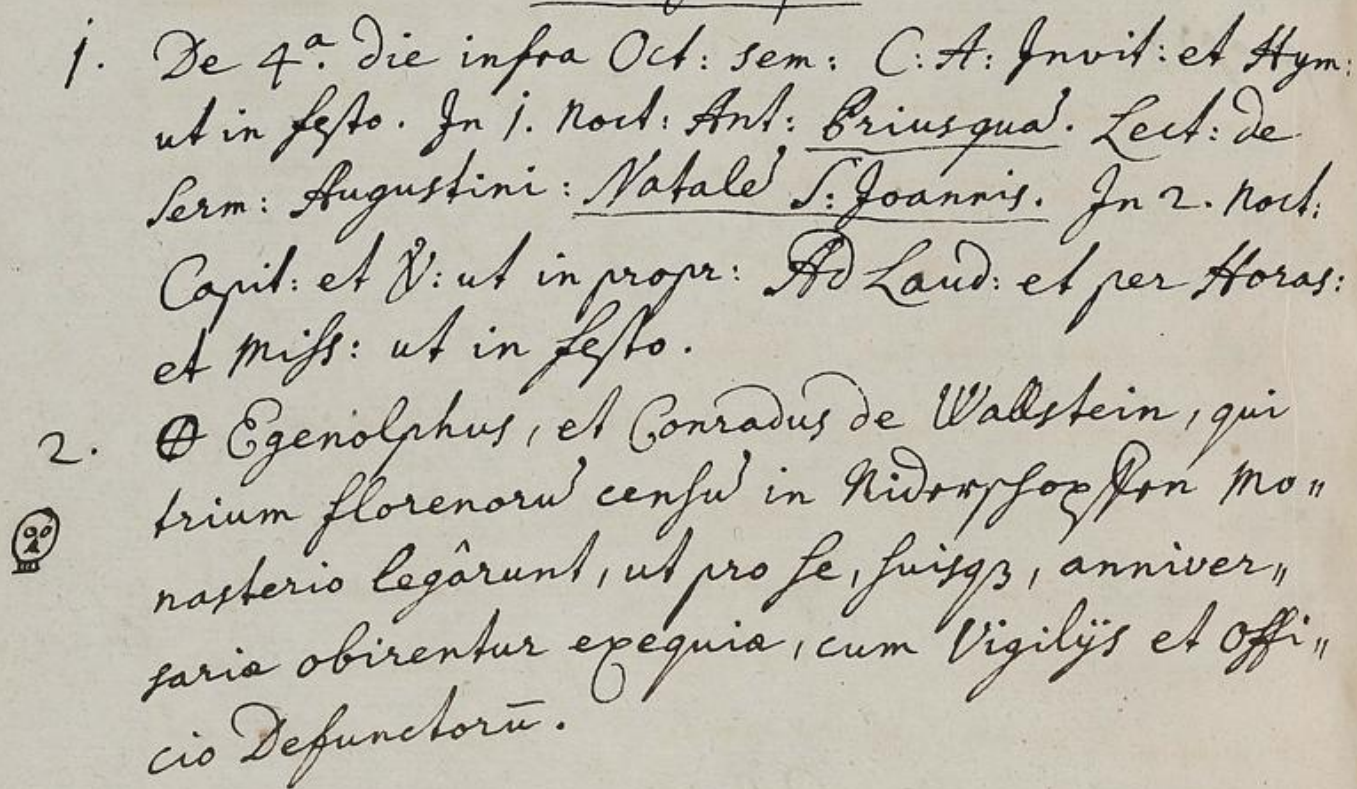 1. De 4.ª die infra Oct: sem: C: A: Invit: et Hym:
ut in festo. In 1. Noct: Ant: Priusquã. Lect: de
Serm: Augustini: Natalẽ S: Joannis. In 2. Noct:
Capit: et ℣: ut in propr: Ad Laud: et per Horas:
et Miss: ut in festo.
2. Egenolphus, et Conradus de Wallstein, qui
trium florenorũ censũ in Mo„
nasterio legârunt, ut pro se, suisqꝫ, anniver„
sariæ obirentur exequiæ, cum Vigilijs et Offi„
cio Defunctorū.